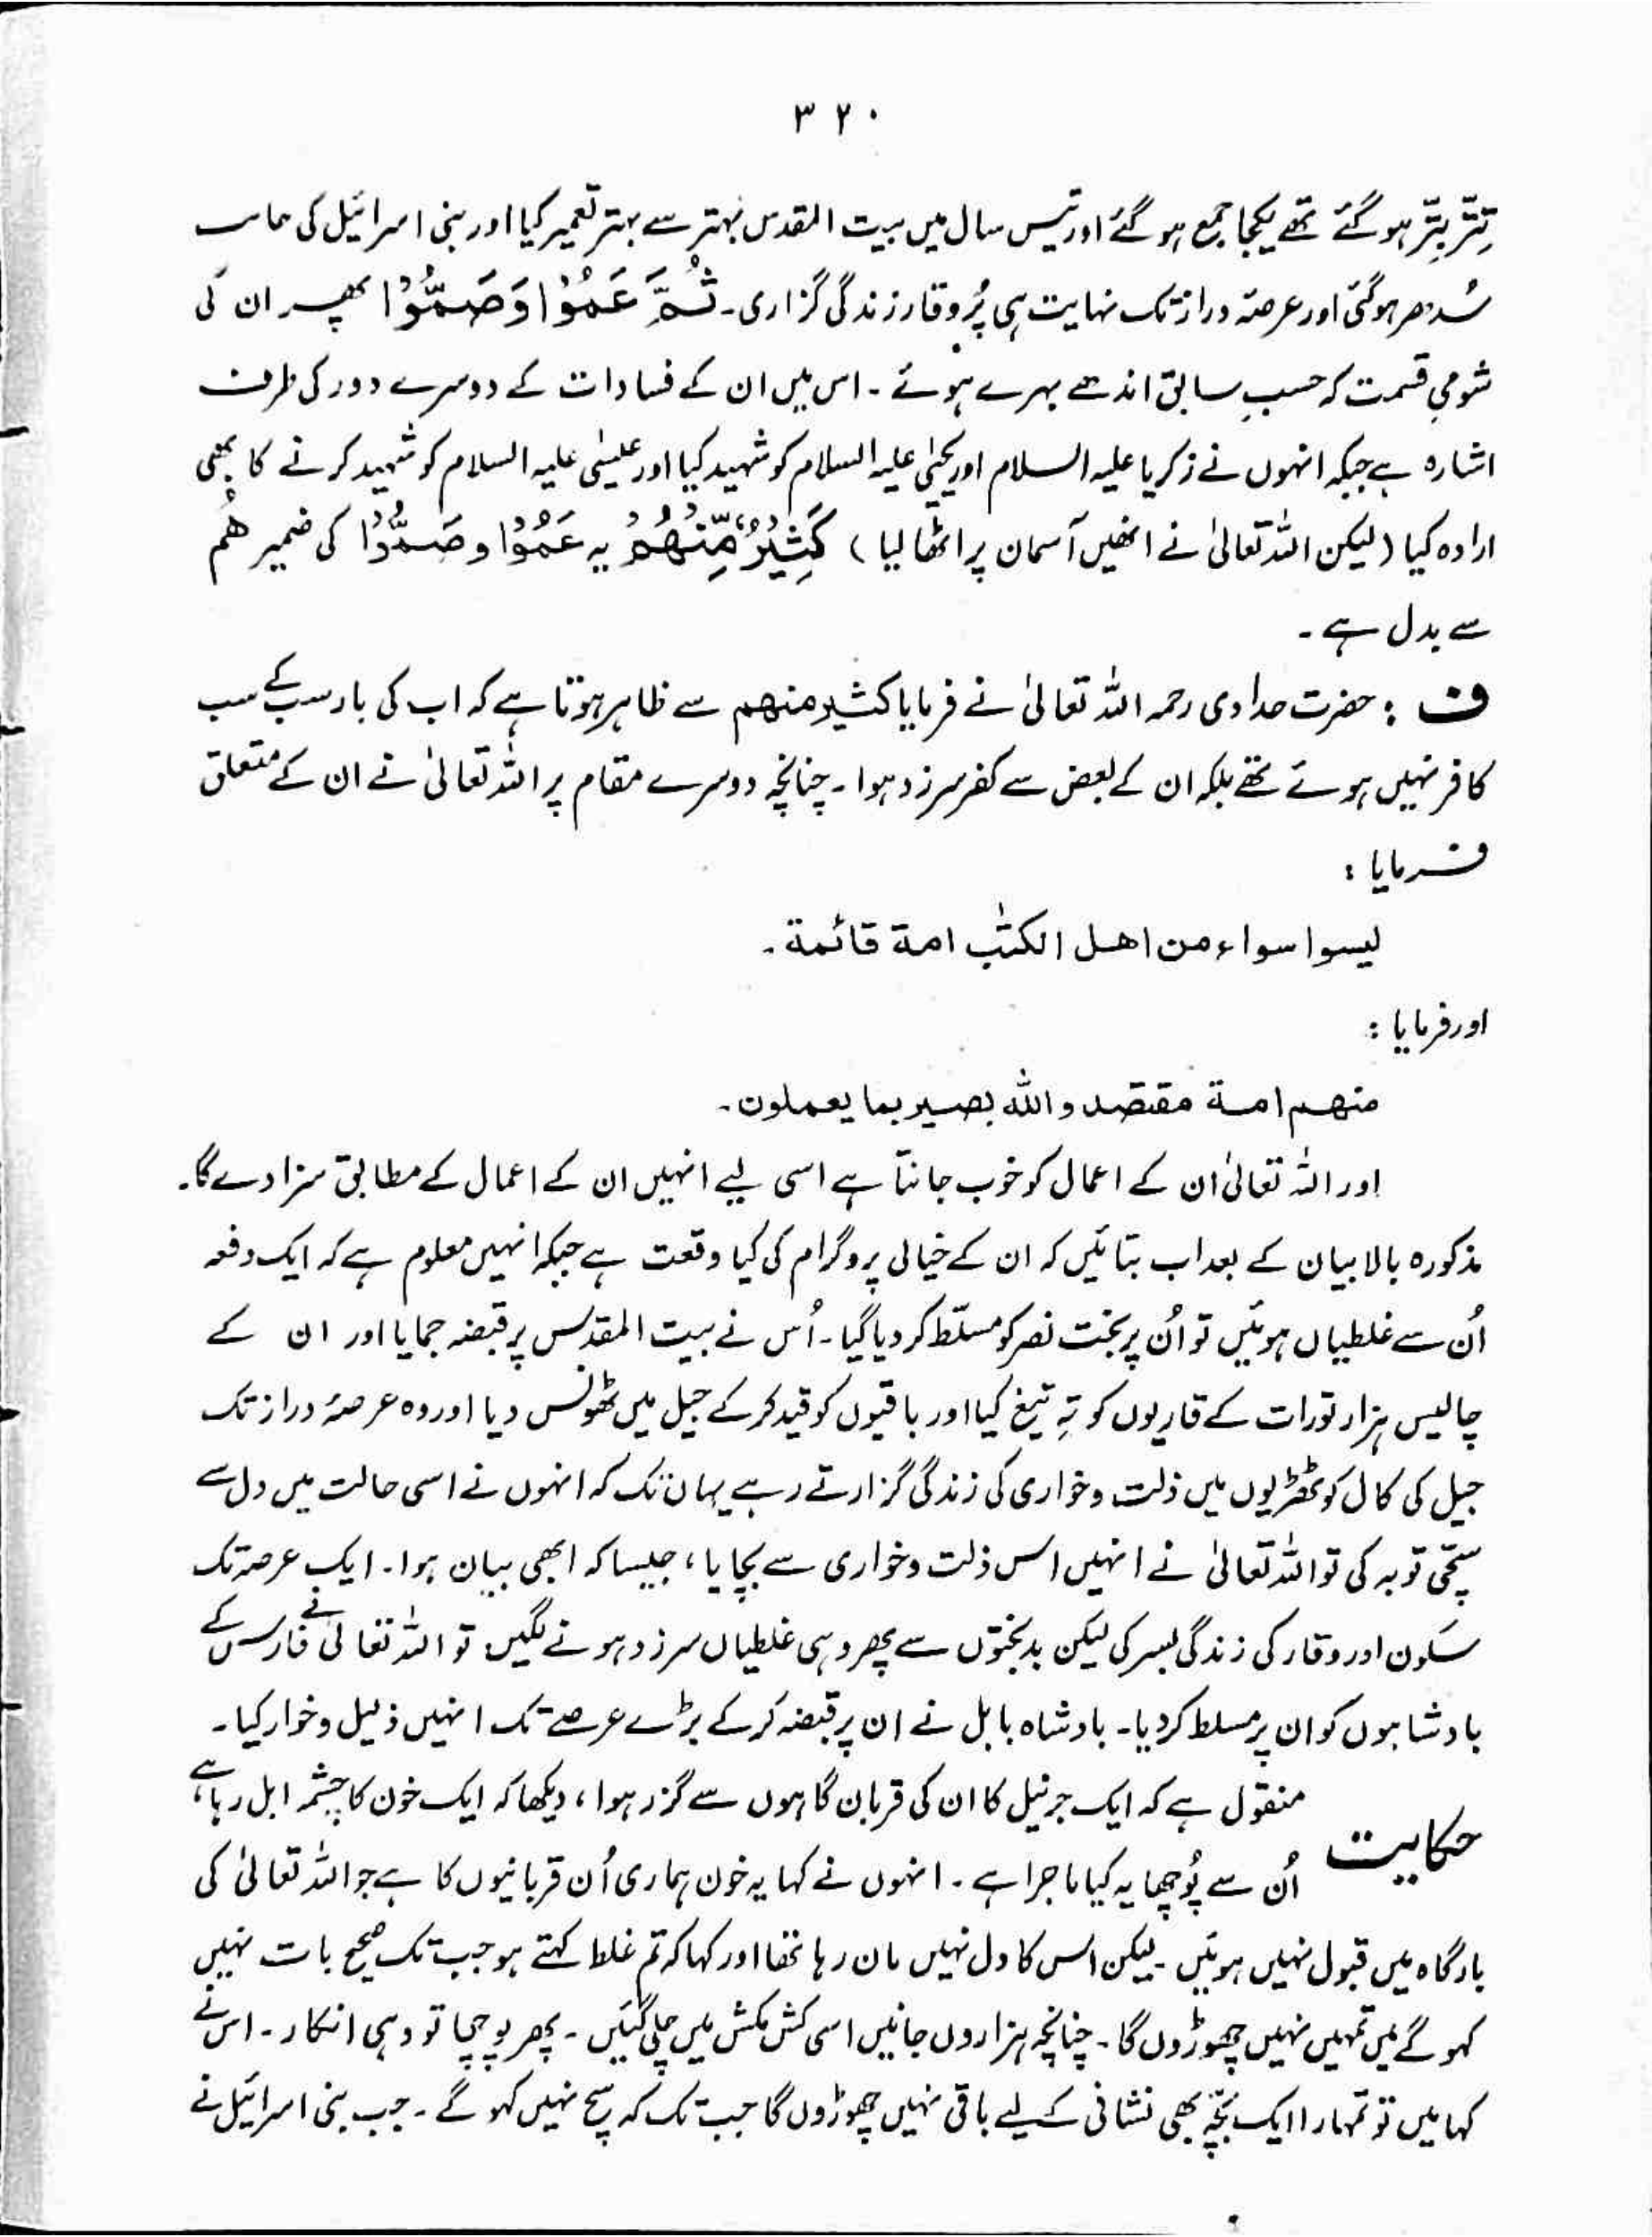 ۳۲۰
تِتّر بِتّر ہو گئے تھے یکجا جمع ہو گئے اور تیس سال میں بیت المقدس بہتر سے بہتر تعمیر کیا اور بنی اسرائیل کی حالت
سُدھر ہو گئی اور عرصۂ دراز تک نہایت ہی پُر وقار زندگی گزاری۔ ثُمَّ عَمُوْا وَصَمُّوْا پھر ان کی
شومیِ قسمت کہ حسبِ سابق اندھے بہرے ہوئے۔ اس میں ان کے فسادات کے دوسرے دور کی طرف
اشارہ ہے جبکہ انہوں نے زکریا علیہ السلام اور یحییٰ علیہ السلام کو شہید کیا اور عیسیٰ علیہ السلام کو شہید کرنے کا بھی
ارادہ کیا (لیکن اللہ تعالیٰ نے انھیں آسمان پر اٹھا لیا) كَثِيْرٌ مِّنْهُمْ یہ عَمُوْا و صَمُّوْا کی ضمیر هُم
سے بدل ہے۔
ف : حضرت حدادی رحمہ اللہ تعالیٰ نے فرمایا کثیر منھم سے ظاہر ہوتا ہے کہ اب کی بار سب کے سب
کافر نہیں ہوئے تھے بلکہ ان کے بعض سے کفر سرزد ہوا۔ چنانچہ دوسرے مقام پر اللہ تعالیٰ نے ان کے متعلق
فرمایا :
ليسوا سواء من اهل الكتٰب امة قائمة۔
اور فرمایا :
منهم امة مقتصد والله بصير بما يعملون۔
اور اللہ تعالیٰ ان کے اعمال کو خوب جانتا ہے اسی لیے انہیں ان کے اعمال کے مطابق سزا دے گا۔
مذکورہ بالا بیان کے بعد اب بتائیں کہ ان کے خیالی پروگرام کی کیا وقعت ہے جبکہ انہیں معلوم ہے کہ ایک دفعہ
اُن سے غلطیاں ہوئیں تو اُن پر بخت نصر کو مسلّط کر دیا گیا۔ اُس نے بیت المقدس پر قبضہ جمایا اور ان کے
چالیس ہزار تورات کے قاریوں کو تہِ تیغ کیا اور باقیوں کو قید کر کے جیل میں ٹھونس دیا اور وہ عرصۂ دراز تک
جیل کی کال کوٹھڑیوں میں ذلت و خواری کی زندگی گزارتے رہے یہاں تک کہ انہوں نے اسی حالت میں دل سے
سچّی توبہ کی تو اللہ تعالیٰ نے انہیں اس ذلت و خواری سے بچایا، جیسا کہ ابھی بیان ہوا۔ ایک عرصہ تک
سکون اور وقار کی زندگی بسر کی لیکن بدبختوں سے پھر وہی غلطیاں سرزد ہونے لگیں تو اللہ تعالیٰ نے فارس کے
بادشاہوں کو ان پر مسلط کر دیا۔ بادشاہ بابل نے ان پر قبضہ کر کے بڑے عرصے تک انہیں ذلیل و خوار کیا۔
حکایت منقول ہے کہ ایک جرنیل کا ان کی قربان گاہوں سے گزر ہوا، دیکھا کہ ایک خون کا چشمہ ابل رہا ہے،
اُن سے پُوچھا یہ کیا ماجرا ہے۔ انہوں نے کہا یہ خون ہماری اُن قربانیوں کا ہے جو اللہ تعالیٰ کی
بارگاہ میں قبول نہیں ہوئیں۔ لیکن اس کا دل نہیں مان رہا تھا اور کہا کہ تم غلط کہتے ہو جب تک صحیح بات نہیں
کہو گے میں تمہیں نہیں چھوڑوں گا۔ چنانچہ ہزاروں جانیں اسی کش مکش میں چلی گئیں۔ پھر پوچھا تو وہی انکار۔ اس نے
کہا میں تو تمہارا ایک بچّہ بھی نشانی کے لیے باقی نہیں چھوڑوں گا جب تک کہ سچ نہیں کہو گے۔ جب بنی اسرائیل نے